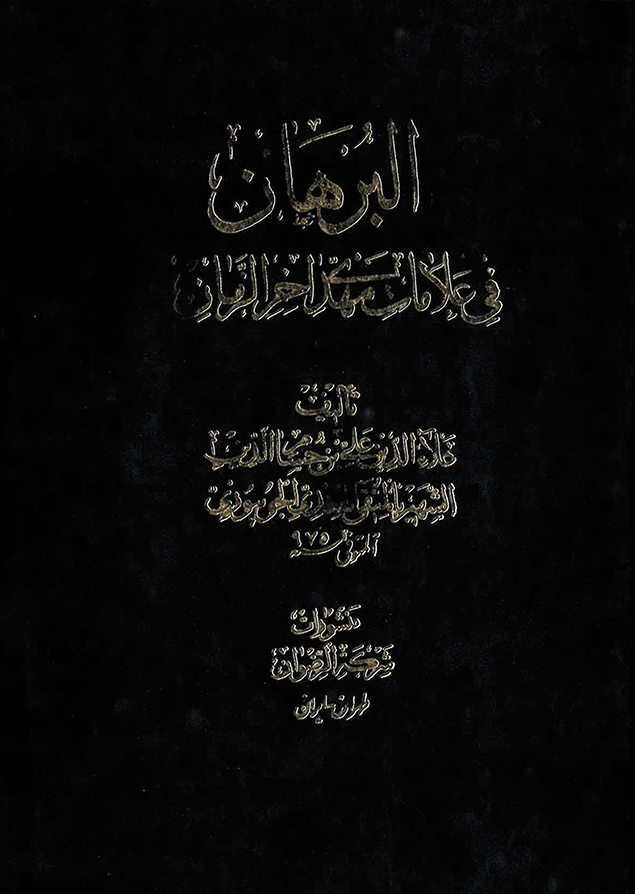 البُرهان
في علامات مهدي آخر الزمان
تأليف
علاء الدين علي بن حسام الدين
الشهير بالمتقي الهندي الجونبوري
المتوفى ٩٧٥هـ
منشورات
شركة الرضوان
طهران - ايران